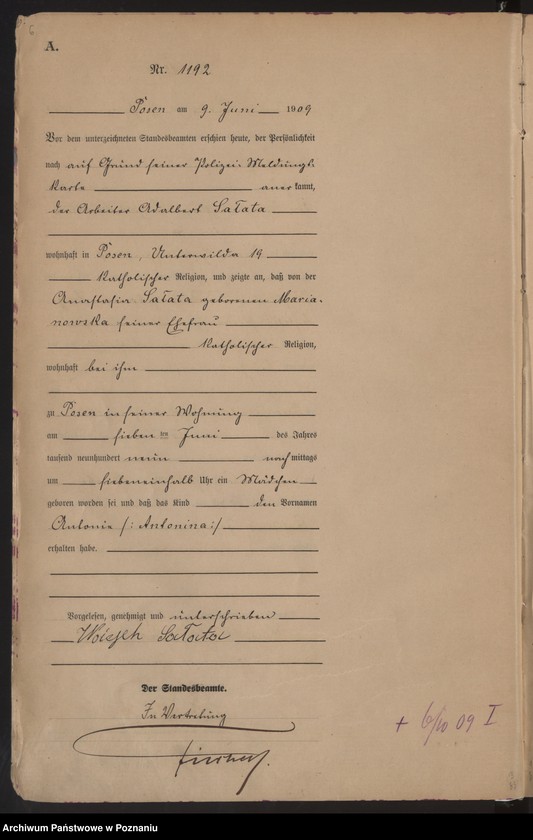 A.
Nr. 1192
Posen am 9. Juni 1909
Vor dem unterzeichneten Standesbeamten erschien heute, der Persönlichkeit
nach auf Grund seiner Polizei-Meldungs-
karte anerkannt,
der Arbeiter Adalbert Sałata
wohnhaft in Posen, Unterwilda 19
katholischer Religion, und zeigte an, daß von der
Anastasia Sałata geborenen Maria-
nowska seiner Ehefrau
katholischer Religion,
wohnhaft bei ihm
zu Posen in seiner Wohnung
am sieben ten Juni des Jahres
tausend neunhundert neun nachmittags
um siebeneinhalb Uhr ein Mädchen
geboren worden sei und daß das Kind den Vornamen
Antonie /: Antonina :/
erhalten habe.
Vorgelesen, genehmigt und unterschrieben
Woicjeh Sałata
Der Standesbeamte.
In Vertretung
+ 6/10 09 I
Archiwum Państwowe w Poznaniu